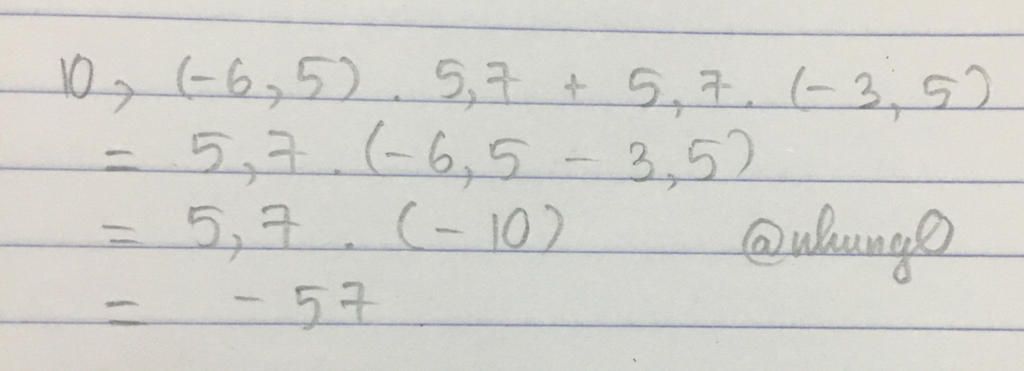 10, (-6,5) . 5,7 + 5,7 . (-3,5)
= 5,7 . (-6,5 - 3,5)
= 5,7 . (-10) @nhung0
= -57